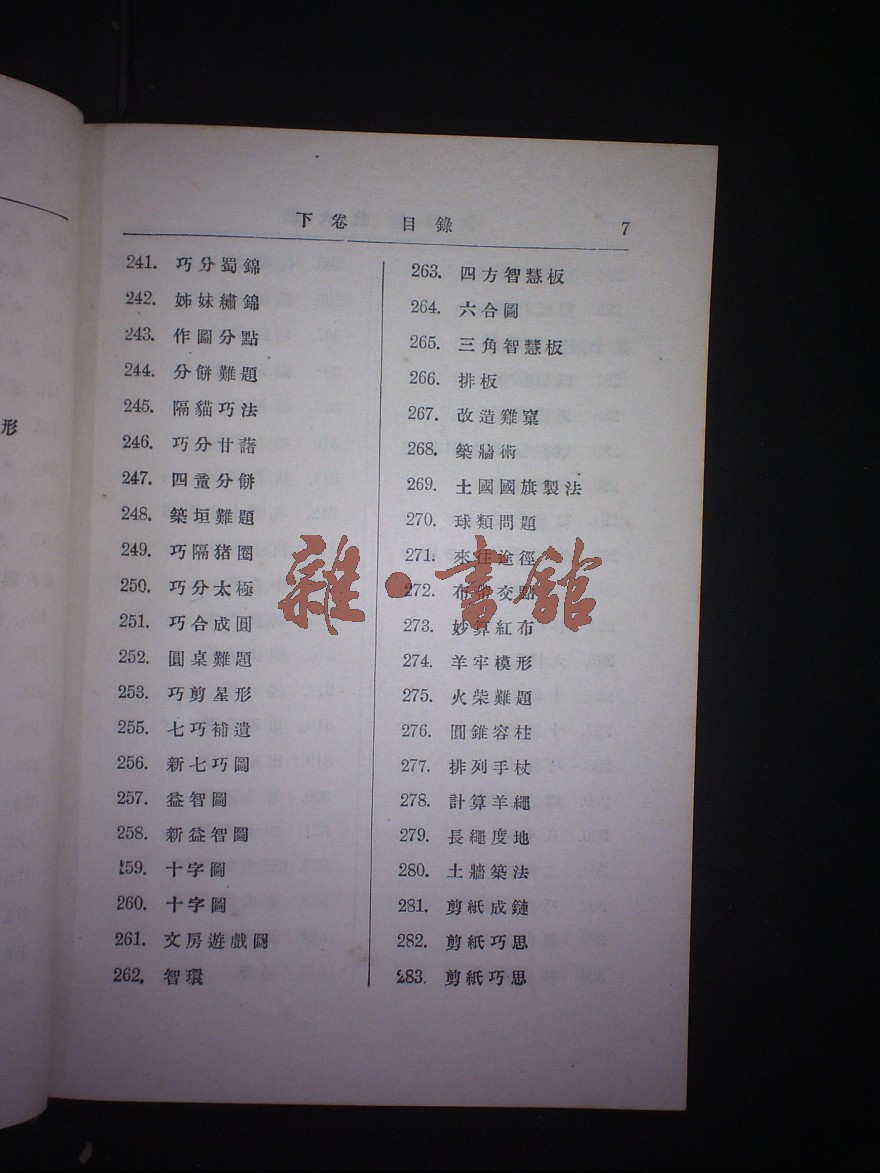 下卷 目錄 7
241. 巧分蜀錦
242. 姊妹繡錦
243. 作圖分點
244. 分餅難題
245. 隔貓巧法
246. 巧分甘藷
247. 四童分餅
248. 築垣難題
249. 巧隔猪圈
250. 巧分太極
251. 巧合成圓
252. 圓桌難題
253. 巧剪星形
255. 七巧補遺
256. 新七巧圖
257. 益智圖
258. 新益智圖
259. 十字圖
260. 十字圖
261. 文房遊戲圖
262. 智環
263. 四方智慧板
264. 六合圖
265. 三角智慧板
266. 排板
267. 改造雞窠
268. 築牆術
269. 土國國旗製法
270. 球類問題
271. 來往途徑
272. 布帶交點
273. 妙算紅布
274. 羊牢模形
275. 火柴難題
276. 圓錐容柱
277. 排列手杖
278. 計算羊繩
279. 長繩度地
280. 土牆築法
281. 剪紙成鏈
282. 剪紙巧思
283. 剪紙巧思
形
雜·書館